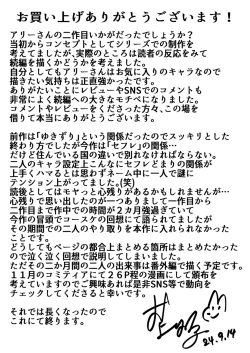 お買い上げありがとうございます!
アリーさんの二作目いかがだったでしょうか?
当初からコンセプトとしてシリーズでの制作を
考えてましたが、実際のところは読者の反応をみて
続編を描くかどうかを考えました。
自分としてもアリーさんはお気に入りのキャラなので
描きたい気持ちは正直強かったです。
ありがたいことにレビューやSNSでのコメントも
非常によく続編への大きなモチベになりました。
関心やコメントをくださった方々、この場を
借りて本当にありがとうございます。
前作は「ゆきずり」という関係だったのでスッキリとした
終わり方でしたが今作は「セフレ」の関係…
だけど住んでいる国の違いで別れなければならない。
二人のキャラ設定上こんなにセフレどまりの関係が
上手くハマるとは思わずネーム中に一人で謎に
テンション上がってました。(笑)
読後としてはちょっと心残りがあるかもしれませんが…
心残りで思い出したのが一つありまして一作目から
二作目まで作中での時間が2カ月強過ぎていて
今作の冒頭でコースケの回想にて語られてましたが
その期間での二人のやり取りを本作に入れられなかった
ことです。
どうしてもページの都合上まとめる箇所はまとめたかった
ので泣く泣く回想で済ましてしまいました。
ただその二か月間の二人の出来事は番外編で描く予定です。
11月のコミティアにて26P程の漫画にして頒布を
考えていますのでご興味あれば是非SNS等で動向を
チェックしてくださると幸いです。
それでは長くなったので
これにて終わります。
24.9.14